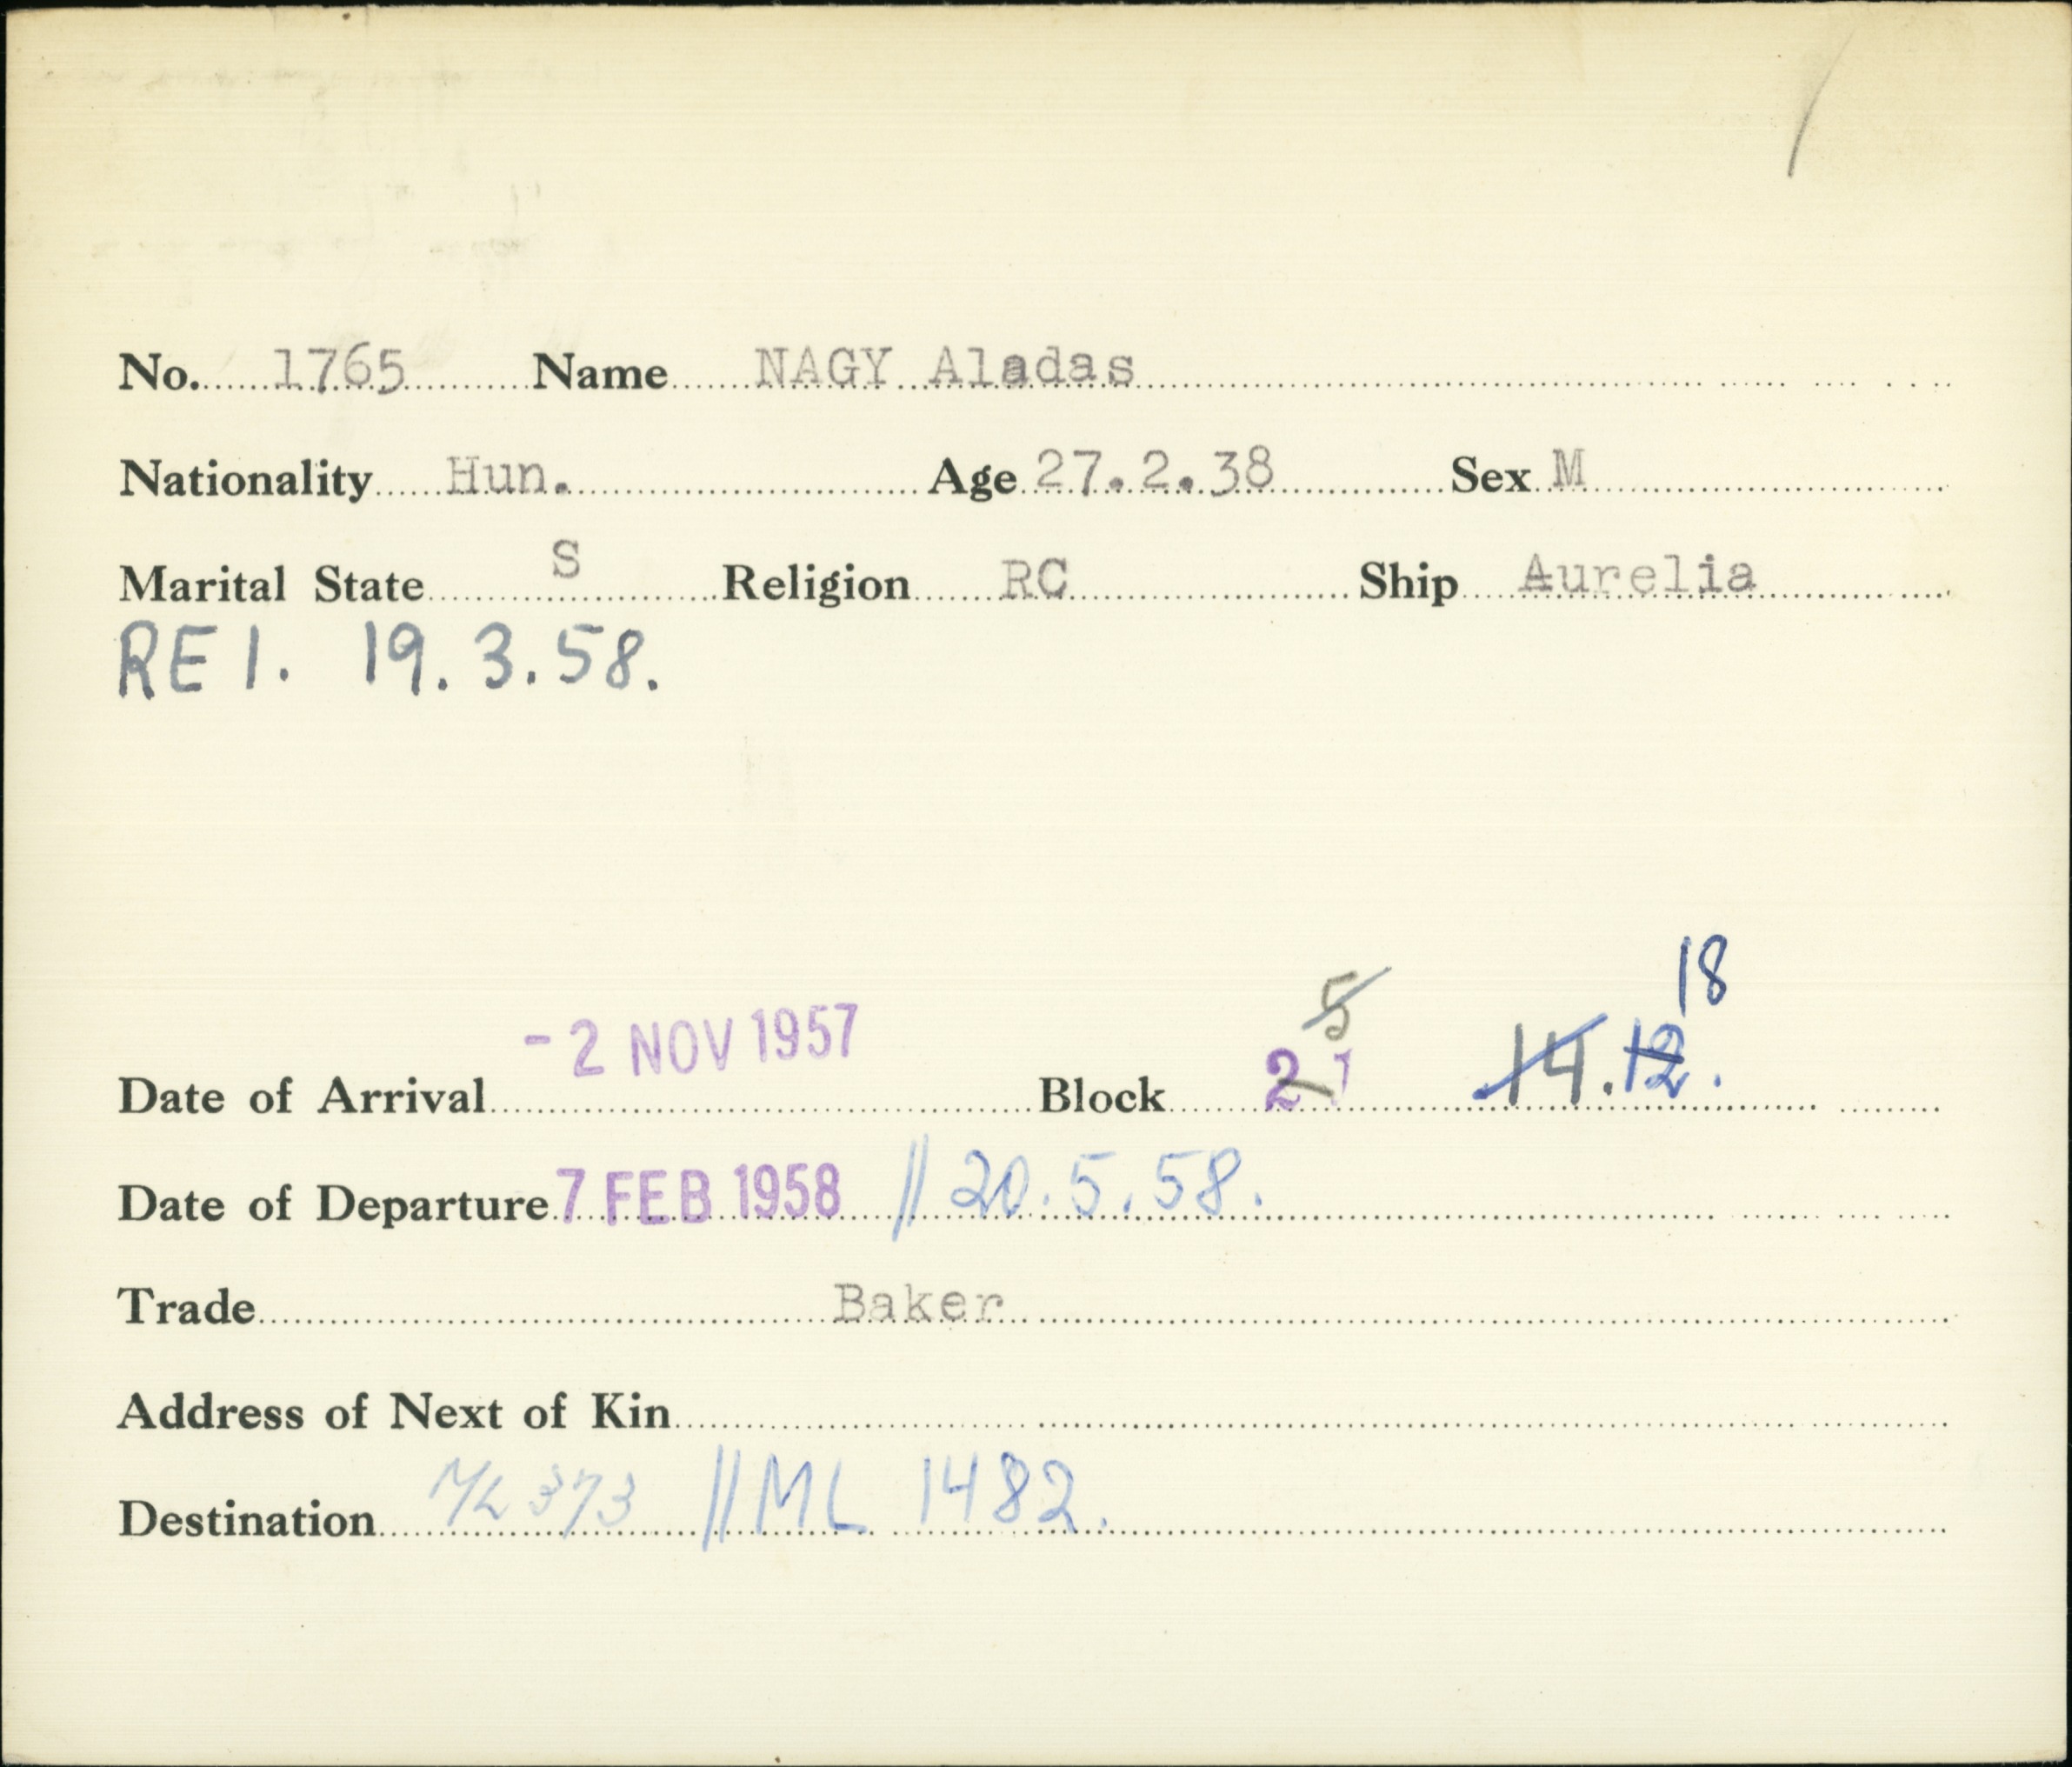 No. 1765 Name NAGY Aladas
Nationality Hun. Age 27.2.38 Sex M
Marital State S Religion RC Ship Aurelia
RE 1. 19.3.58.
18
5
Date of Arrival - 2 NOV 1957 Block 21 14. 12.
Date of Departure 7 FEB 1958 // 20.5.58.
Trade Baker
Address of Next of Kin
Destination ML 373 // ML 1482.